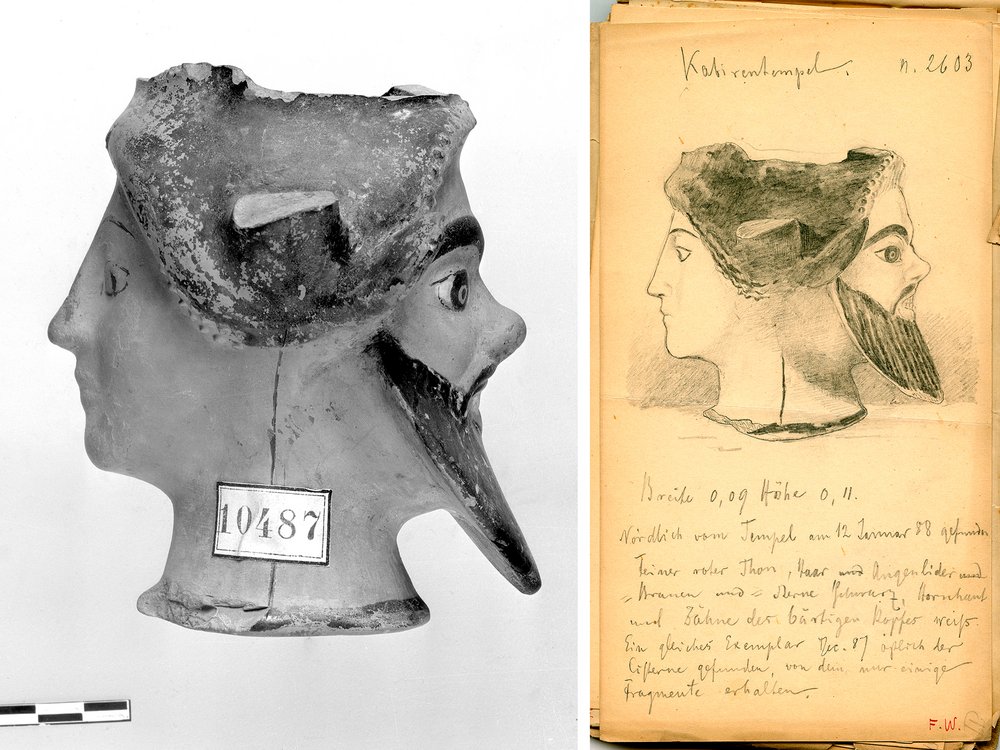 10487
Kabirentempel. n. 2603
Breite 0,09 Höhe 0,11.
Nördlich vom Tempel am 12 Januar 88 gefunden
Feiner roter Thon, Haar und Augenlider und
= Brauen und = Sterne Schwarz, Hornhaut
und Zähne des bärtigen Kopfes weiß.
Ein gleiches Exemplar Dec. 87 östlich der
Cisterne gefunden, von dem nur einige
Fragmente erhalten.
F. W.